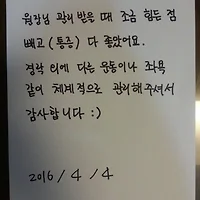 원장님 관리 받을 때 조금 힘든 점
빼고 (통증) 다 좋았어요.
경락 외에 다른 운동이나 좌욕
같이 체계적으로 관리해주셔서
감사합니다 :)
2016 / 4 / 4